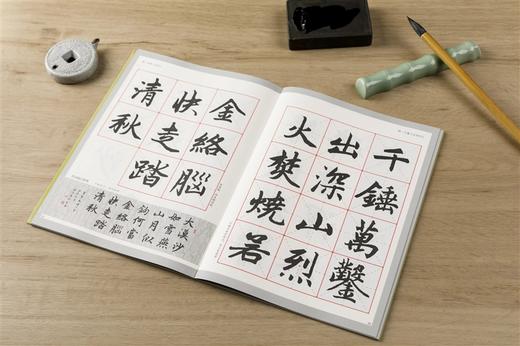 千錘萬鑿
出深山烈
火焚燒若
金絡腦
快走踏
清秋
大漠沙
如雪燕
山月似
鈎何當
金絡腦
快走踏
清秋